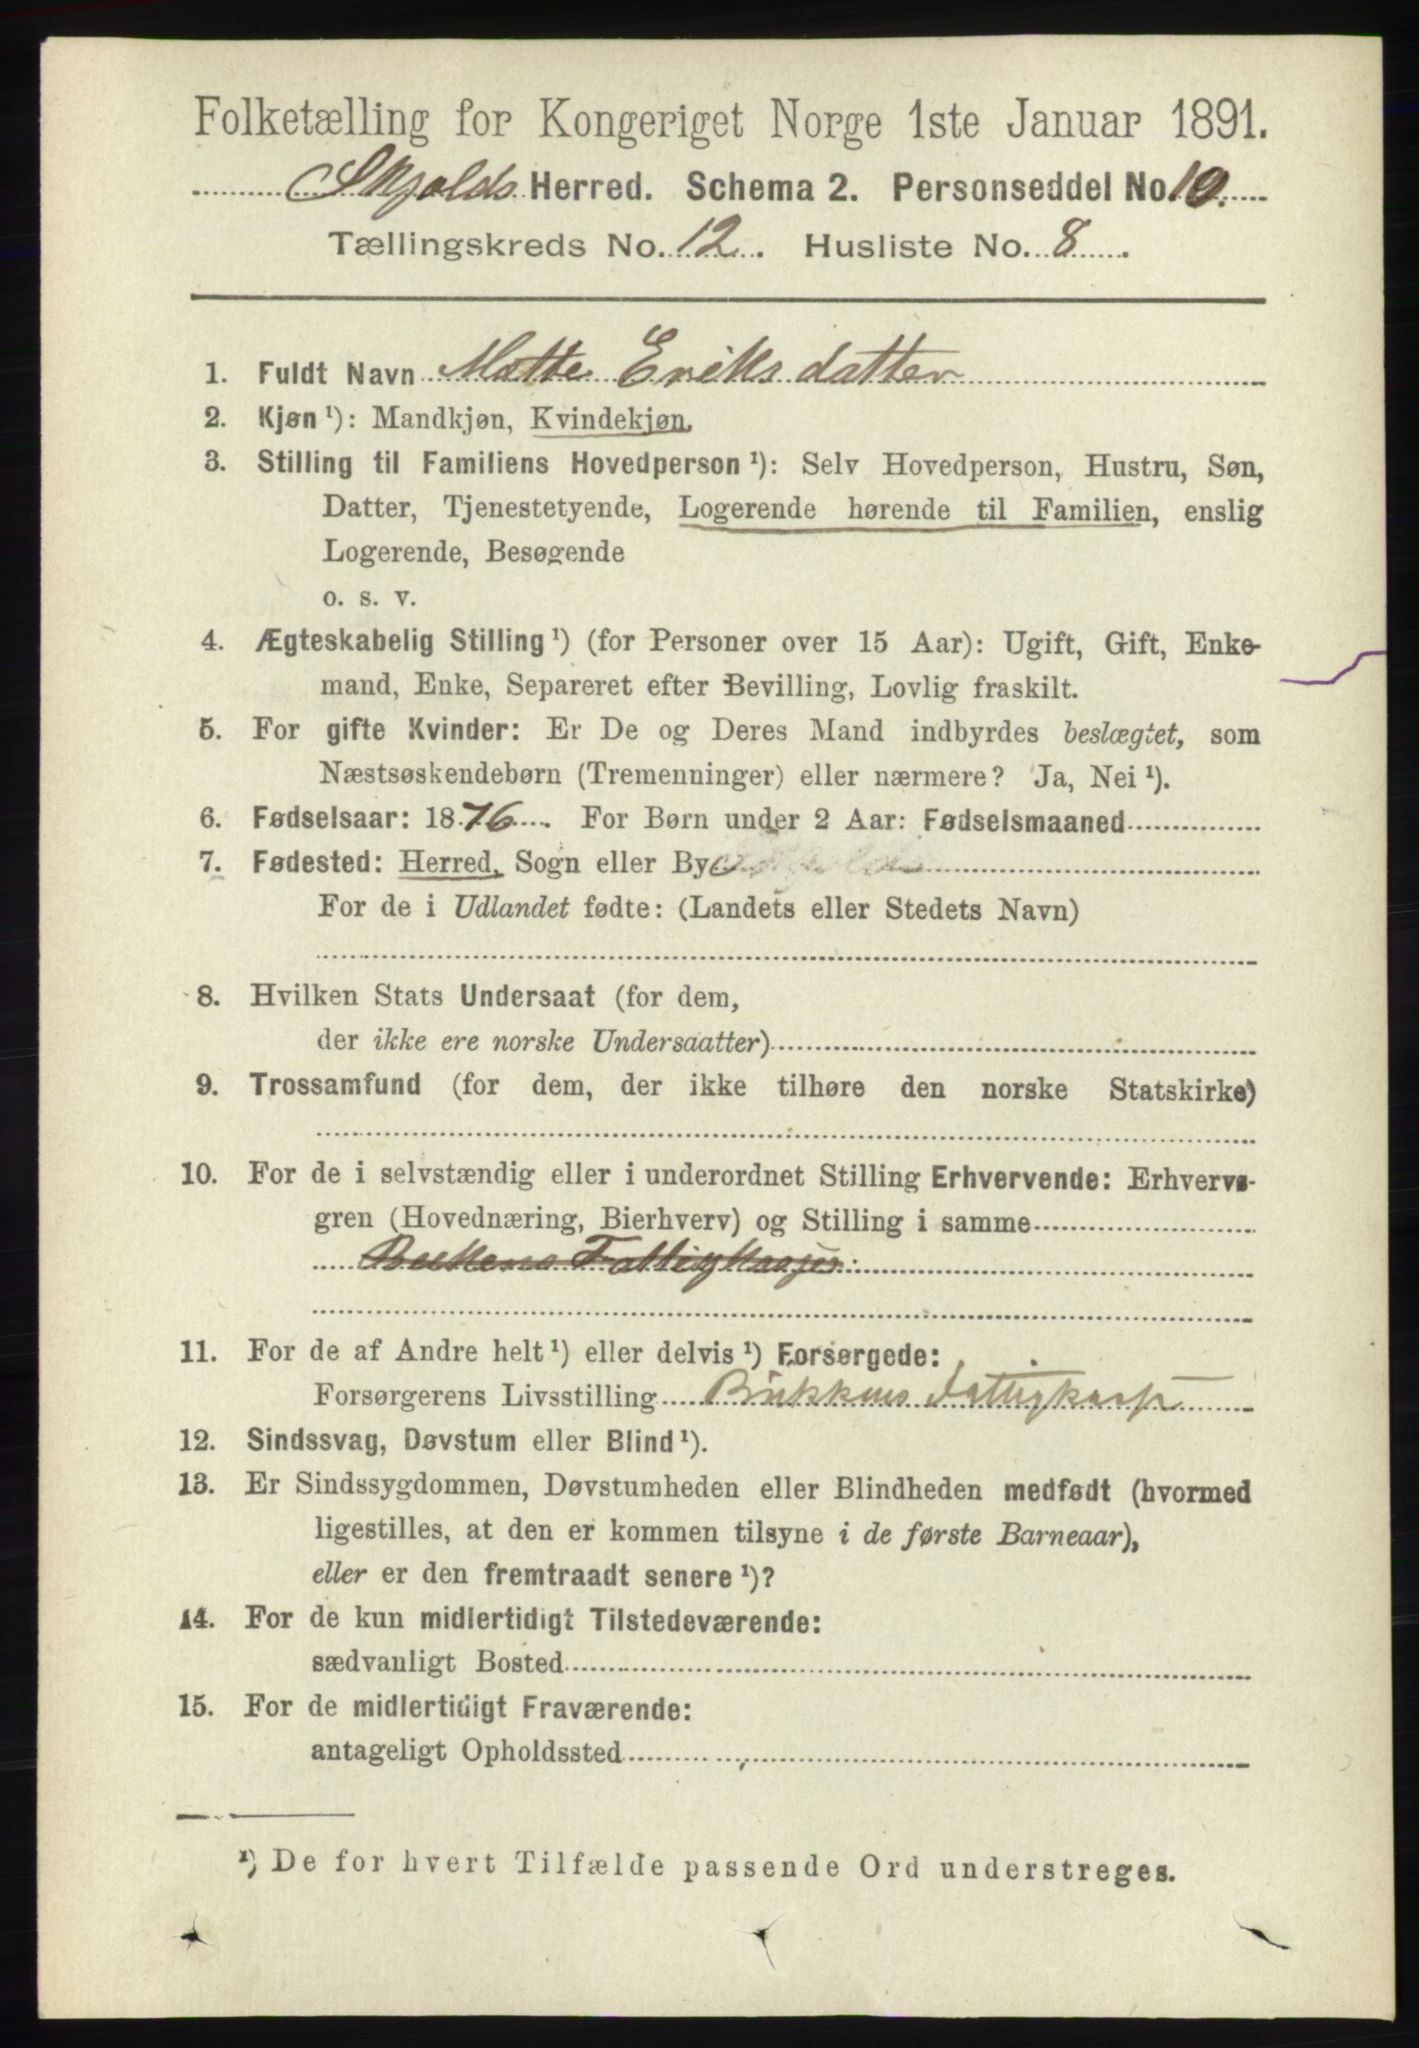 Folketælling for Kongeriget Norge 1ste Januar 1891.
Skjolds Herred. Schema 2. Personseddel No. 10.
Tællingskreds No. 12. Husliste No. 8.
1. Fuldt Navn Mette Eriksdatter
2. Kjøn ¹): Mandkjøn, Kvindekjøn.
3. Stilling til Familiens Hovedperson ¹): Selv Hovedperson, Hustru, Søn,
Datter, Tjenestetyende, Logerende hørende til Familien, enslig
Logerende, Besøgende
o. s. v.
4. Ægteskabelig Stilling ¹) (for Personer over 15 Aar): Ugift, Gift, Enke-
mand, Enke, Separeret efter Bevilling, Lovlig fraskilt.
5. For gifte Kvinder: Er De og Deres Mand indbyrdes beslægtet, som
Næstsøskendebørn (Tremenninger) eller nærmere? Ja, Nei ¹).
6. Fødselsaar: 1876. For Børn under 2 Aar: Fødselsmaaned
7. Fødested: Herred, Sogn eller By
For de i Udlandet fødte: (Landets eller Stedets Navn)
8. Hvilken Stats Undersaat (for dem,
der ikke ere norske Undersaatter)
9. Trossamfund (for dem, der ikke tilhøre den norske Statskirke)
10. For de i selvstændig eller i underordnet Stilling Erhvervende: Erhvervs-
gren (Hovednæring, Bierhverv) og Stilling i samme
11. For de af Andre helt ¹) eller delvis ¹) Forsørgede:
Forsørgerens Livsstilling
12. Sindssvag, Døvstum eller Blind ¹).
13. Er Sindssygdommen, Døvstumheden eller Blindheden medfødt (hvormed
ligestilles, at den er kommen tilsyne i de første Barneaar),
eller er den fremtraadt senere ¹)?
14. For de kun midlertidigt Tilstedeværende:
sædvanligt Bosted
15. For de midlertidigt Fraværende:
antageligt Opholdssted
¹) De for hvert Tilfælde passende Ord understreges.